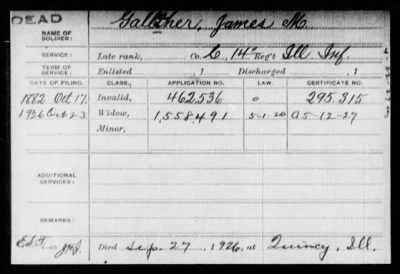 DEAD
NAME OF SOLDIER: Gallaher, James M.
SERVICE: Late rank, Co. C, 14" Reg't Ill. Inf.
TERM OF SERVICE: Enlisted , 1 Discharged , 1
DATE OF FILING. CLASS. APPLICATION NO. LAW. CERTIFICATE NO.
1882 Oct 17, Invalid, 462,536 o 295.315
1926 Oct 23 Widow, 1,558,491 5-1-20 A 5-12-27
Minor,
ADDITIONAL SERVICES:
REMARKS:
Died Sep. 27 , 1926, at Quincy, Ill.